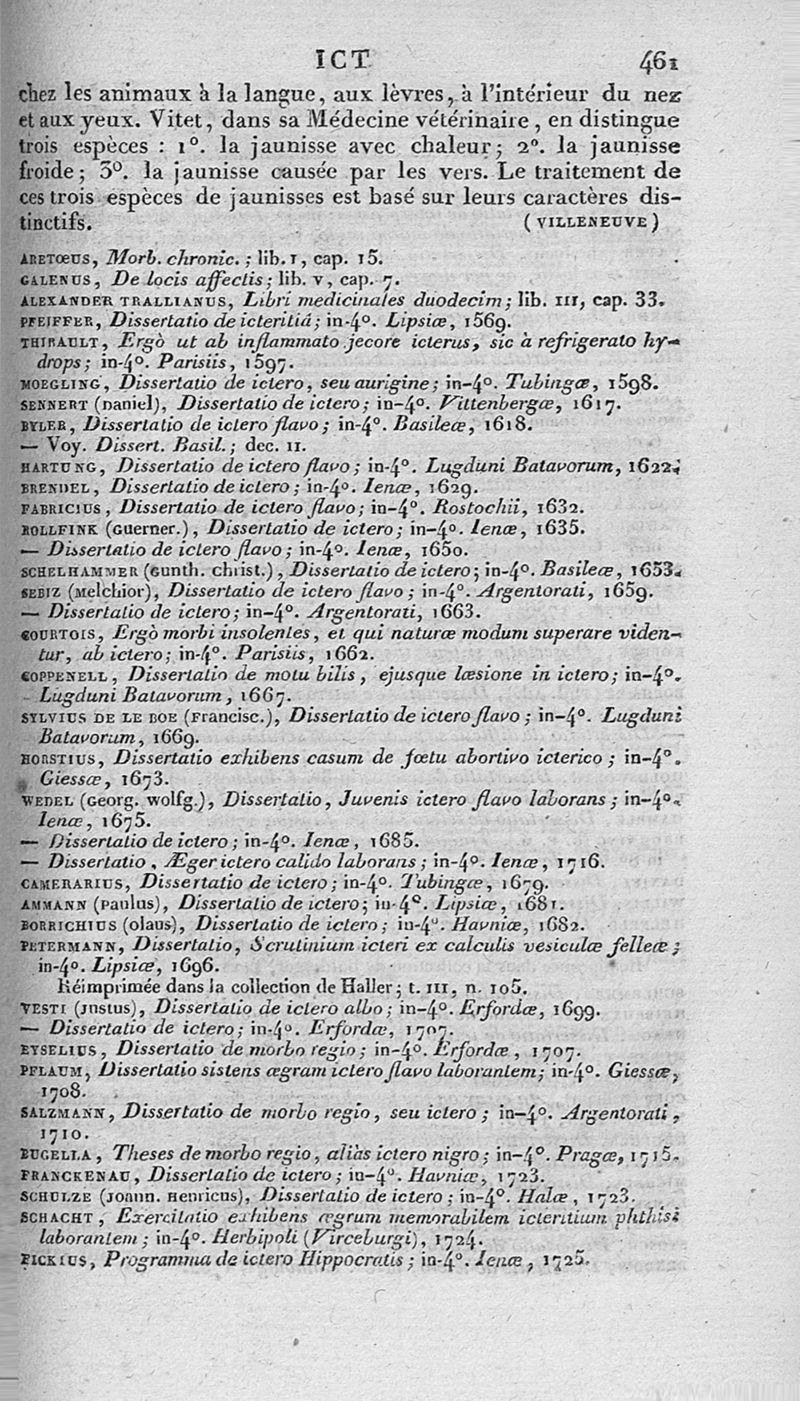 ICT 461
chez les animaux à la langue, aux lèvres, à l'intérieur du nez
et aux yeux. Vitet, dans sa Médecine vétérinaire, en distingue
trois espèces : 1°. la jaunisse avec chaleur; 2°. la jaunisse
froide; 3°. la jaunisse causée par les vers. Le traitement de
ces trois espèces de jaunisses est basé sur leurs caractères dis-
tinctifs. (VILLENEUVE)
ARETŒUS, Morb. chronic.; lib. I, cap. 15.
GALENUS, De locis affectis; lib. V, cap. 7.
ALEXANDER TRALLIANUS, Libri medicinales duodecim; lib. III, cap. 33.
PFEIFFER, Dissertatio de icteritiâ; in-4°. Lipsiæ, 1569.
THIRAULT, Ergò ut ab inflammato jecore icterus, sic à refrigerato hy-
drops; in-4°. Parisiis, 1597.
MOEGLING, Dissertatio de ictero, seu aurigine; in-4°. Tubingæ, 1598.
SENNERT (Daniel), Dissertatio de ictero; in-4°. Vittenbergæ, 1617.
BYLER, Dissertatio de ictero flavo; in-4°. Basileæ, 1618.
— Voy. Dissert. Basil.; dec. II.
HARTUNG, Dissertatio de ictero flavo; in-4°. Lugduni Batavorum, 1622.
BRENDEL, Dissertatio de ictero; in-4°. Ienæ, 1629.
FABRICIUS, Dissertatio de ictero flavo; in-4°. Rostochii, 1632.
ROLLFINK (Guerner.), Dissertatio de ictero; in-4°. Ienæ, 1635.
— Dissertatio de ictero flavo; in-4°. Ienæ, 1650.
SCHELHAMMER (Gunth. Christ.), Dissertatio de ictero; in-4°. Basileæ, 1653.
SEBIZ (Melchior), Dissertatio de ictero flavo; in-4°. Argentorati, 1659.
— Dissertatio de ictero; in-4°. Argentorati, 1663.
COURTOIS, Ergò morbi insolentes, et qui naturæ modum superare viden-
tur, ab ictero; in-4°. Parisiis, 1662.
COPPENELL, Dissertatio de motu bilis, ejusque læsione in ictero; in-4°.
Lugduni Batavorum, 1667.
SYLVIUS DE LE BOE (Francisc.), Dissertatio de ictero flavo; in-4°. Lugduni
Batavorum, 1669.
HORSTIUS, Dissertatio exhibens casum de fœtu abortivo icterico; in-4°.
Giessæ, 1673.
WEDEL (Georg. Wolfg.), Dissertatio, Juvenis ictero flavo laborans; in-4°.
Ienæ, 1675.
— Dissertatio de ictero; in-4°. Ienæ, 1685.
— Dissertatio, Æger ictero calido laborans; in-4°. Ienæ, 1716.
CAMERARIUS, Dissertatio de ictero; in-4°. Tubingæ, 1679.
AMMANN (Paulus), Dissertatio de ictero; in-4°. Lipsiæ, 1681.
BORRICHIUS (Olaus), Dissertatio de ictero; in-4°. Havniæ, 1682.
PETERMANN, Dissertatio, Scrutinium icteri ex calculis vesiculæ felleæ;
in-4°. Lipsiæ, 1696.
Réimprimée dans la collection de Haller; t. III, n. 105.
VESTI (Justus), Dissertatio de ictero albo; in-4°. Erfordæ, 1699.
— Dissertatio de ictero; in-4°. Erfordæ, 1707.
EYSELIUS, Dissertatio de morbo regio; in-4°. Erfordæ, 1707.
PFLAUM, Dissertatio sistens ægram ictero flavo laborantem; in-4°. Giessæ,
1708.
SALZMANN, Dissertatio de morbo regio, seu ictero; in-4°. Argentorati,
1710.
BUGELLA, Theses de morbo regio, aliàs ictero nigro; in-4°. Pragæ, 1715.
FRANCKENAU, Dissertatio de ictero; in-4°. Havniæ, 1723.
SCHULZE (Joann. Henricus), Dissertatio de ictero; in-4°. Halæ, 1723.
SCHACHT, Exercitatio exhibens ægrum memorabilem icteritium phthisi
laborantem; in-4°. Herbipoli (Virceburgi), 1724.
FICKIUS, Programma de ictero Hippocratis; in-4°. Ienæ, 1725.